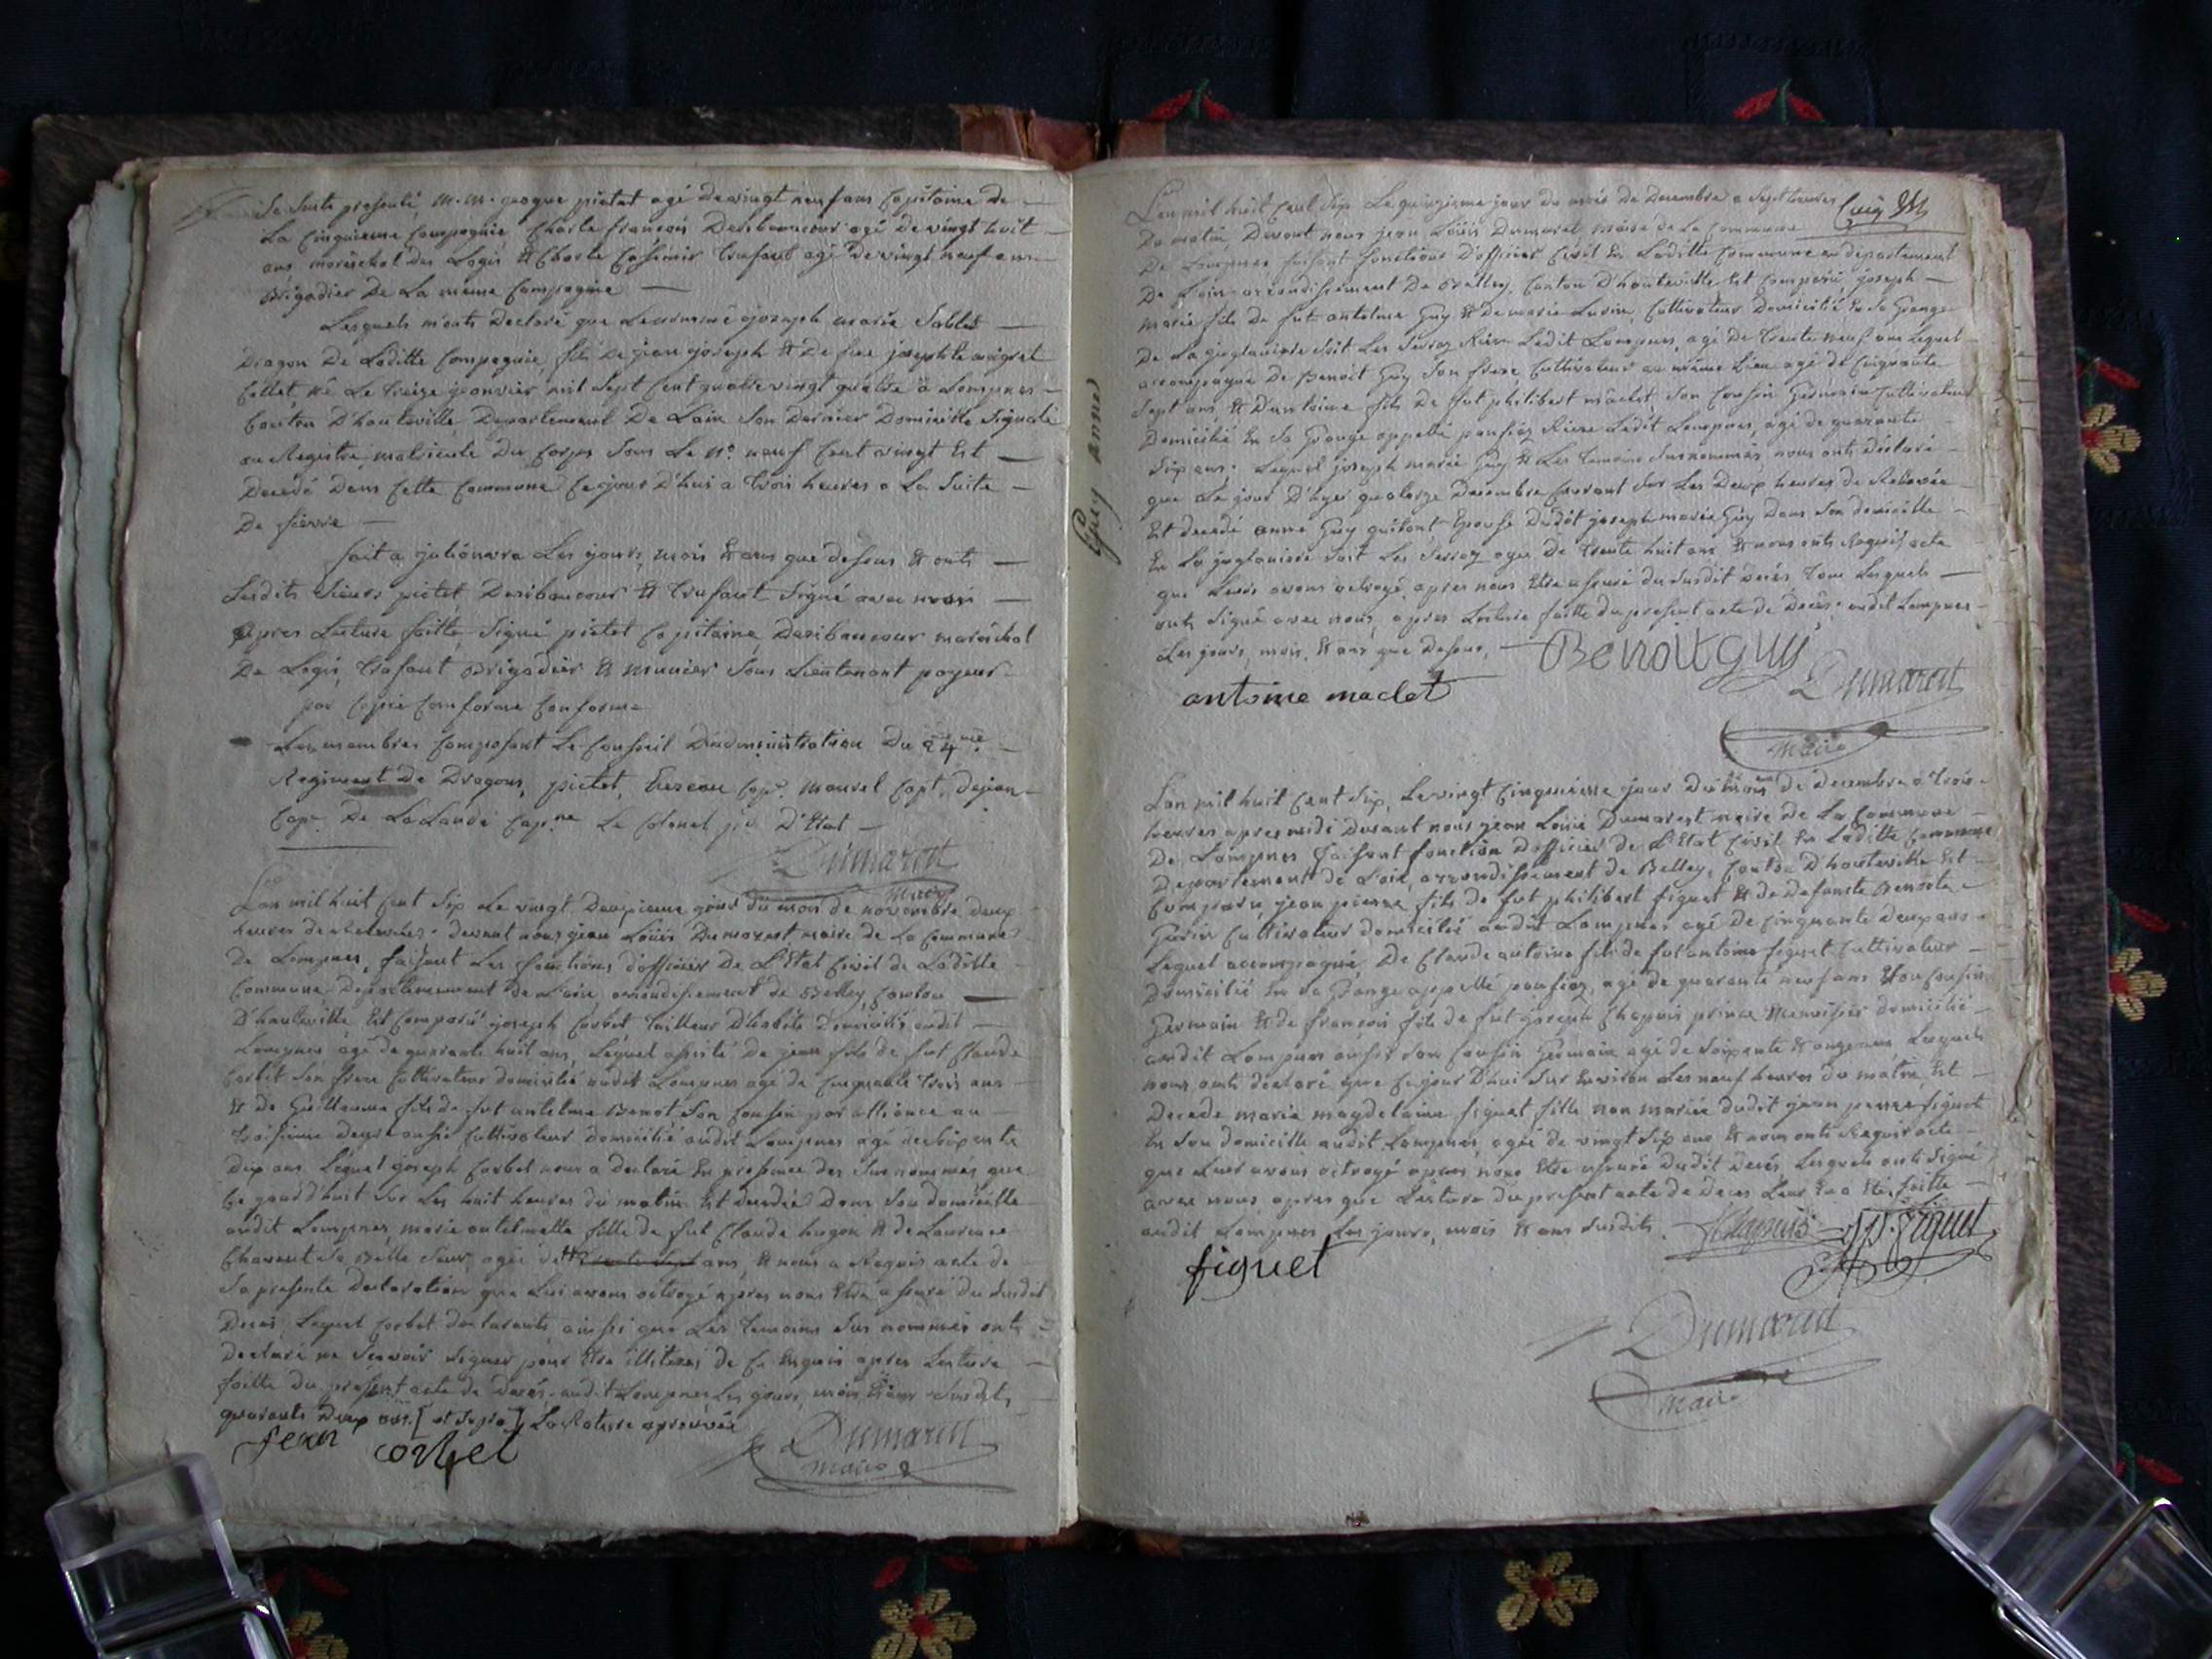 Se sunts presenté, M. M. jacque pictet agé de vingt neuf ans Capitaine de
La Cinquieme Compagnie, Charle francois Desibaucour agé de vingt huit
ans maréchal des Logis & Charle Casimir trufaut agé de vingt neuf ans
Brigadier De La meme Compagnie
Lesquels m'onts Declaré que Le nommé joseph marie Sablet
Dragon De Laditte Compagnie, fils De jean joseph & De feue josephte
Collet, né Le treize janvier mil sept Cent quatre vingt quatre à Lompnes
Canton D'hauteville, Departement De Lain Son Dernier Domicille Signalé
au Registre matricule Du Corps Sous Le No. neuf Cent vingt Est
Decedé Dans Cette Commune Cejour D'hui a trois heures a La Suite
De fievre
fait a les jours, mois & ans que dessus & onts
Lesdits Sieurs pictet Desibaucour & trufaut Signé avec moi
apres Lecture faitte, Signé pictet Capitaine, Desibaucour maréchal
De Logis, trufaut Brigadier & munier Sous Lieutenant payeur
par Copie Conforme Conforme
Les membres Composant Le Conseil D'administration Du 24me
Regiment De Dragons, pictet, Cap. Maurel Capt. dejean
Capne De Lalande Capne Le Colonel D'Etat
Dumarest
Maire
Lan mil huit Cent Six Le vingt Deuxieme jour du mois de novembre deux
heures de Relevées. devant nous jean Louis Dumarest maire de La Commune
De Lompnes, faisant Les fonctions d'officier De L'Etat Civil de Laditte
Commune, Departement de L'ain, arrondissement de Belley, Canton
D'hauteville Est Comparu joseph Corbet tailleur D'habits domicilié audit
Lompnes agé de quarante huit ans, Lequel assisté De jean fils de fut Claude
Corbet Son frere Cultivateur domicilié audit Lompnes agé de Cinquante trois ans
& de Guillaume fils de fut antelme Benot Son Cousin par alliance au
troisieme degré aussi Cultivateur domicilié audit Lompnes agé de soixante
dix ans Lequel joseph Corbet nous a declaré En presence des Sus nommés, que
Ce jourd'huit Sur Les huit heures du matin Est decedée Dans Son domicille
audit Lompnes, marie antelmette fille de fut Claude hugon & de Laurence
Charvet Sa Belle Seur agée de trente sept ans, & nous a Requis acte de
Sa presente Declaration que Lui avons octroyé apres nous Etre assuré du Susdit
Decès, Lequel Corbet declarants ainssi que Les temoins Sus nommés onts
Declaré ne Scavoir Signer pour Etre illiteres de Ce Enquis apres Lecture
faitte du present acte de Deces, audit Lompnes Les jours, mois & ans Susdits
quarante Deux ans. [ et Supra ] La Rature aprouvée
Jean corbet
Dumarest
Maire
Guy Anne
Lan mil huit Cent Six Le quinzieme jour du mois de Decembre a Sept heures
Du matin, Devant nous jean Louis Dumarest maire de La Commune
De Lompnes faisant fonctions D'officier Civil En Laditte Commune au departement
De L'ain arrondissement De Belley, Canton D'hauteville Est Comparu, joseph
marie fils De fut antelme Guy & De marie Cultivateur Domicilié En Sa Grange
De La soit Les Riere Ledit Lompnes, agé De trente neuf ans Lequel
accompagné De Benoit Guy Son frere Cultivateur au même Lieu agé de Cinquante
Sept ans & D'antoine fils De fut philibert maclet Son Cousin Germain Cultivateur
Domicilié En Sa Grange appellé Riere Ledit Lompnes, agé de quarante
Six ans. Lequel joseph marie Guy & Les temoins Susnommés nous onts déclaré
que Le jour D'hyer quatorze Decembre Courant Sur Les Deux heures de Relevée
Est decedé anne Guy Epouse Dudit joseph marie Guy Dans Son domicille
En La soit Les agée De trente huit ans & nous onts Requis acte
que Leurs avons octroyé, apres nous Etre assuré du Susdit Decés, tous Lesquels
onts Signé avec nous, apres Lecture faitte du present acte de Deces, audit Lompnes
Les jours, mois, & ans que Dessus,
Benoit guy
antoine maclet
Dumarest
Maire
Lan mil huit Cent Six, Le vingt Cinquieme jour Du mois de decembre a trois
heures apres midi Devant nous jean Louis Dumarest maire de La Commune
De Lompnes faisant fonction d'officier de L'Etat Civil En Laditte Commune
Departement de L'ain, arrondissement de Belley, Canton D'hauteville Est
Comparu, jean pierre fils de fut philibert figuet & de Defuncte Benoite
Cultivateur domicilié audit Lompnes agé de Cinquante Deux ans
Lequel accompagné De Claude antoine fils de fut antoine figuet Cultivateur
Domicilié En Sa Grange appellé agé de quarante neuf ans Son Cousin
Germain & de francois fils de fut joseph Chapuis Menuisier domicilié
audit Lompnes aussi Son Cousin Germain agé de Soixante & onze ans, Lesquels
nous onts declaré que Cejour D'hui Sur Environ Les neuf heures du matin Est
Decede marie magdelaine figuet fille non mariée dudit jean pierre figuet
En Son domicille audit Lompnes, agée de vingt Six ans & nous onts Requis acte
que Leur avons octroyé apres nous Etre assuré dudit Decés, Lesquels onts Signé
avec nous apres que Lecture du present acte de Deces Leur En a Eté faitte
audit Lompnes Les jours, mois & ans Susdits.
Chapuis
J.p. figuet
figuet
Dumarest
Maire